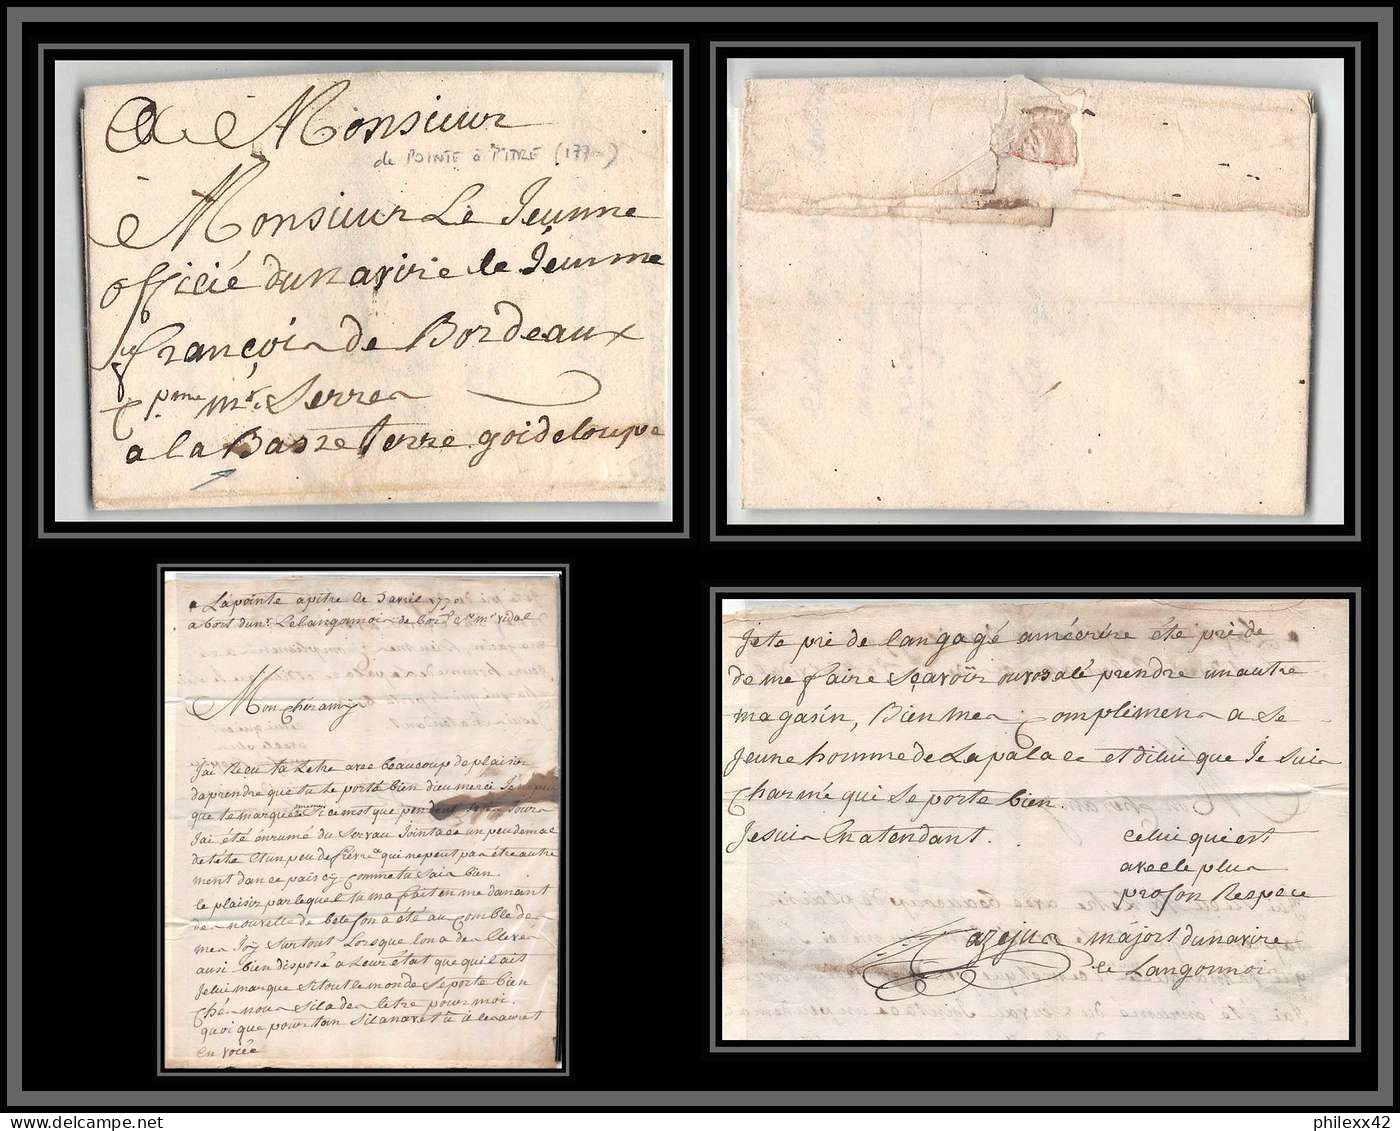 A Monsieur
de POINTE à PITRE (177 )
à Monsieur Le Jeunne
officié dunavire le Jeunne
françois de Bordeaux
Cpme mr. Serres
a la Basse terre goideloupe
a Lapointe apitre le 3 avril 177
a bort dunr. Lelangonnois de bord. Cne mr vidal
Mon cher amy
J'ai Reçu ta Letre avec beaucoup de plaisir
daprendre que tu te porté bien dieu merci
que te marquer ce mot que pendent Jour
J'ai été enrumé du Servau Jointace un peu demal
de tete et un peu de fievre qui ne peut pas etre autre
ment dan ce pais cy Comme tu Sais bien.
le plaisir par lequel tu ma fait en me danant
des nouvelle de bele fon a été au Comble de
mes Joÿ Surtout Lorsque lon a des Eleves
ausi bien disposé a Leur etat que quil ait
Jelui marque et tout le monde Se porte bien
Ché nous Sil a des letre pour moi
quoi que pour tan Sil anavet tu il les auret
en voiée
Je te prié de langagé amécrire été prié de
de me faire Sçavoir ouvos alé prendre un autre
magasin, Bien mes Complimens a Se
Jeune homme de Lapalace et di lui que Je Suis
Charmé qui Se porte bien.
Je suis Enatendant. celui qui est
avec le plus
profon Respece
azejus majors dunavire
le Langonnois
philexx42